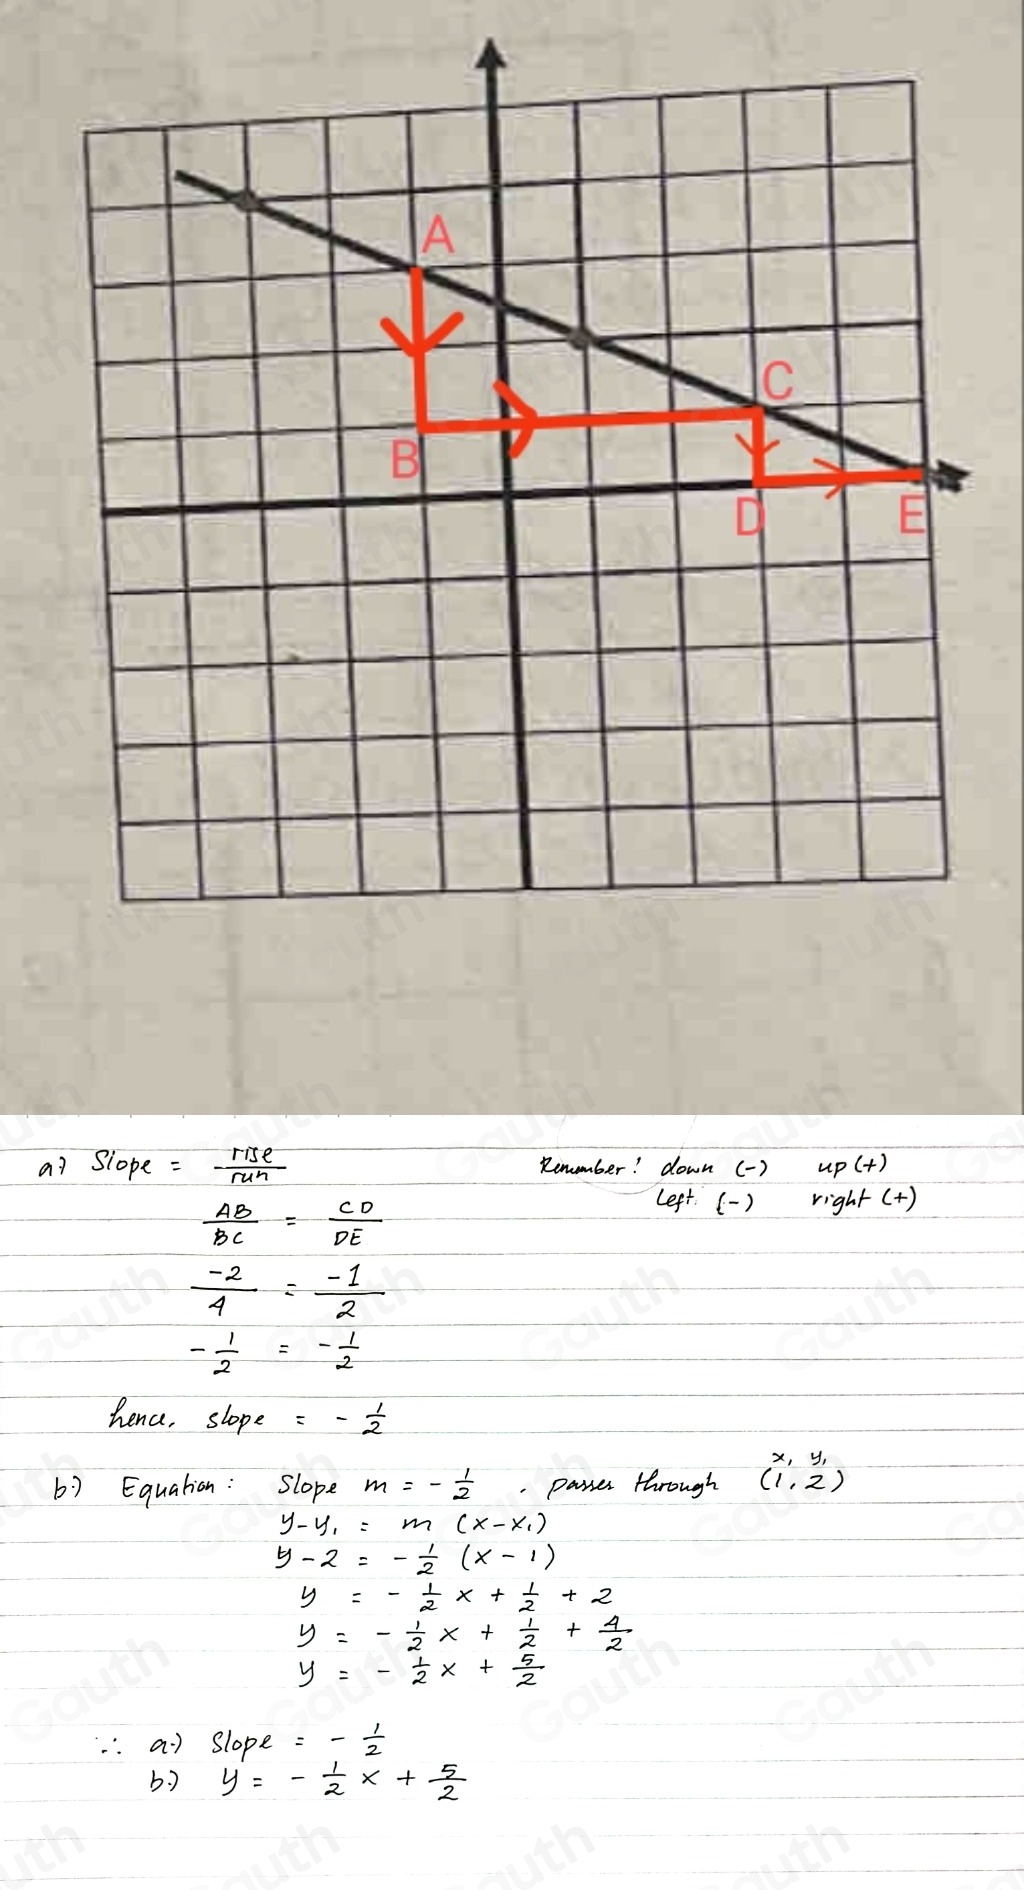 A
C
B
D
E
a) Slope = rise/run Remember! down (-) up (+)
Left (-) right (+)
AB/BC = CD/DE
-2/4 = -1/2
-1/2 = -1/2
hence, slope = -1/2
x₁ y₁
b.) Equation: Slope m = -1/2, passes through (1, 2)
y-y₁ = m (x-x₁)
y-2 = -1/2 (x-1)
y = -1/2 x + 1/2 + 2
y = -1/2 x + 1/2 + 4/2
y = -1/2 x + 5/2
∴ a.) Slope = -1/2
b.) y = -1/2 x + 5/2
Gauth